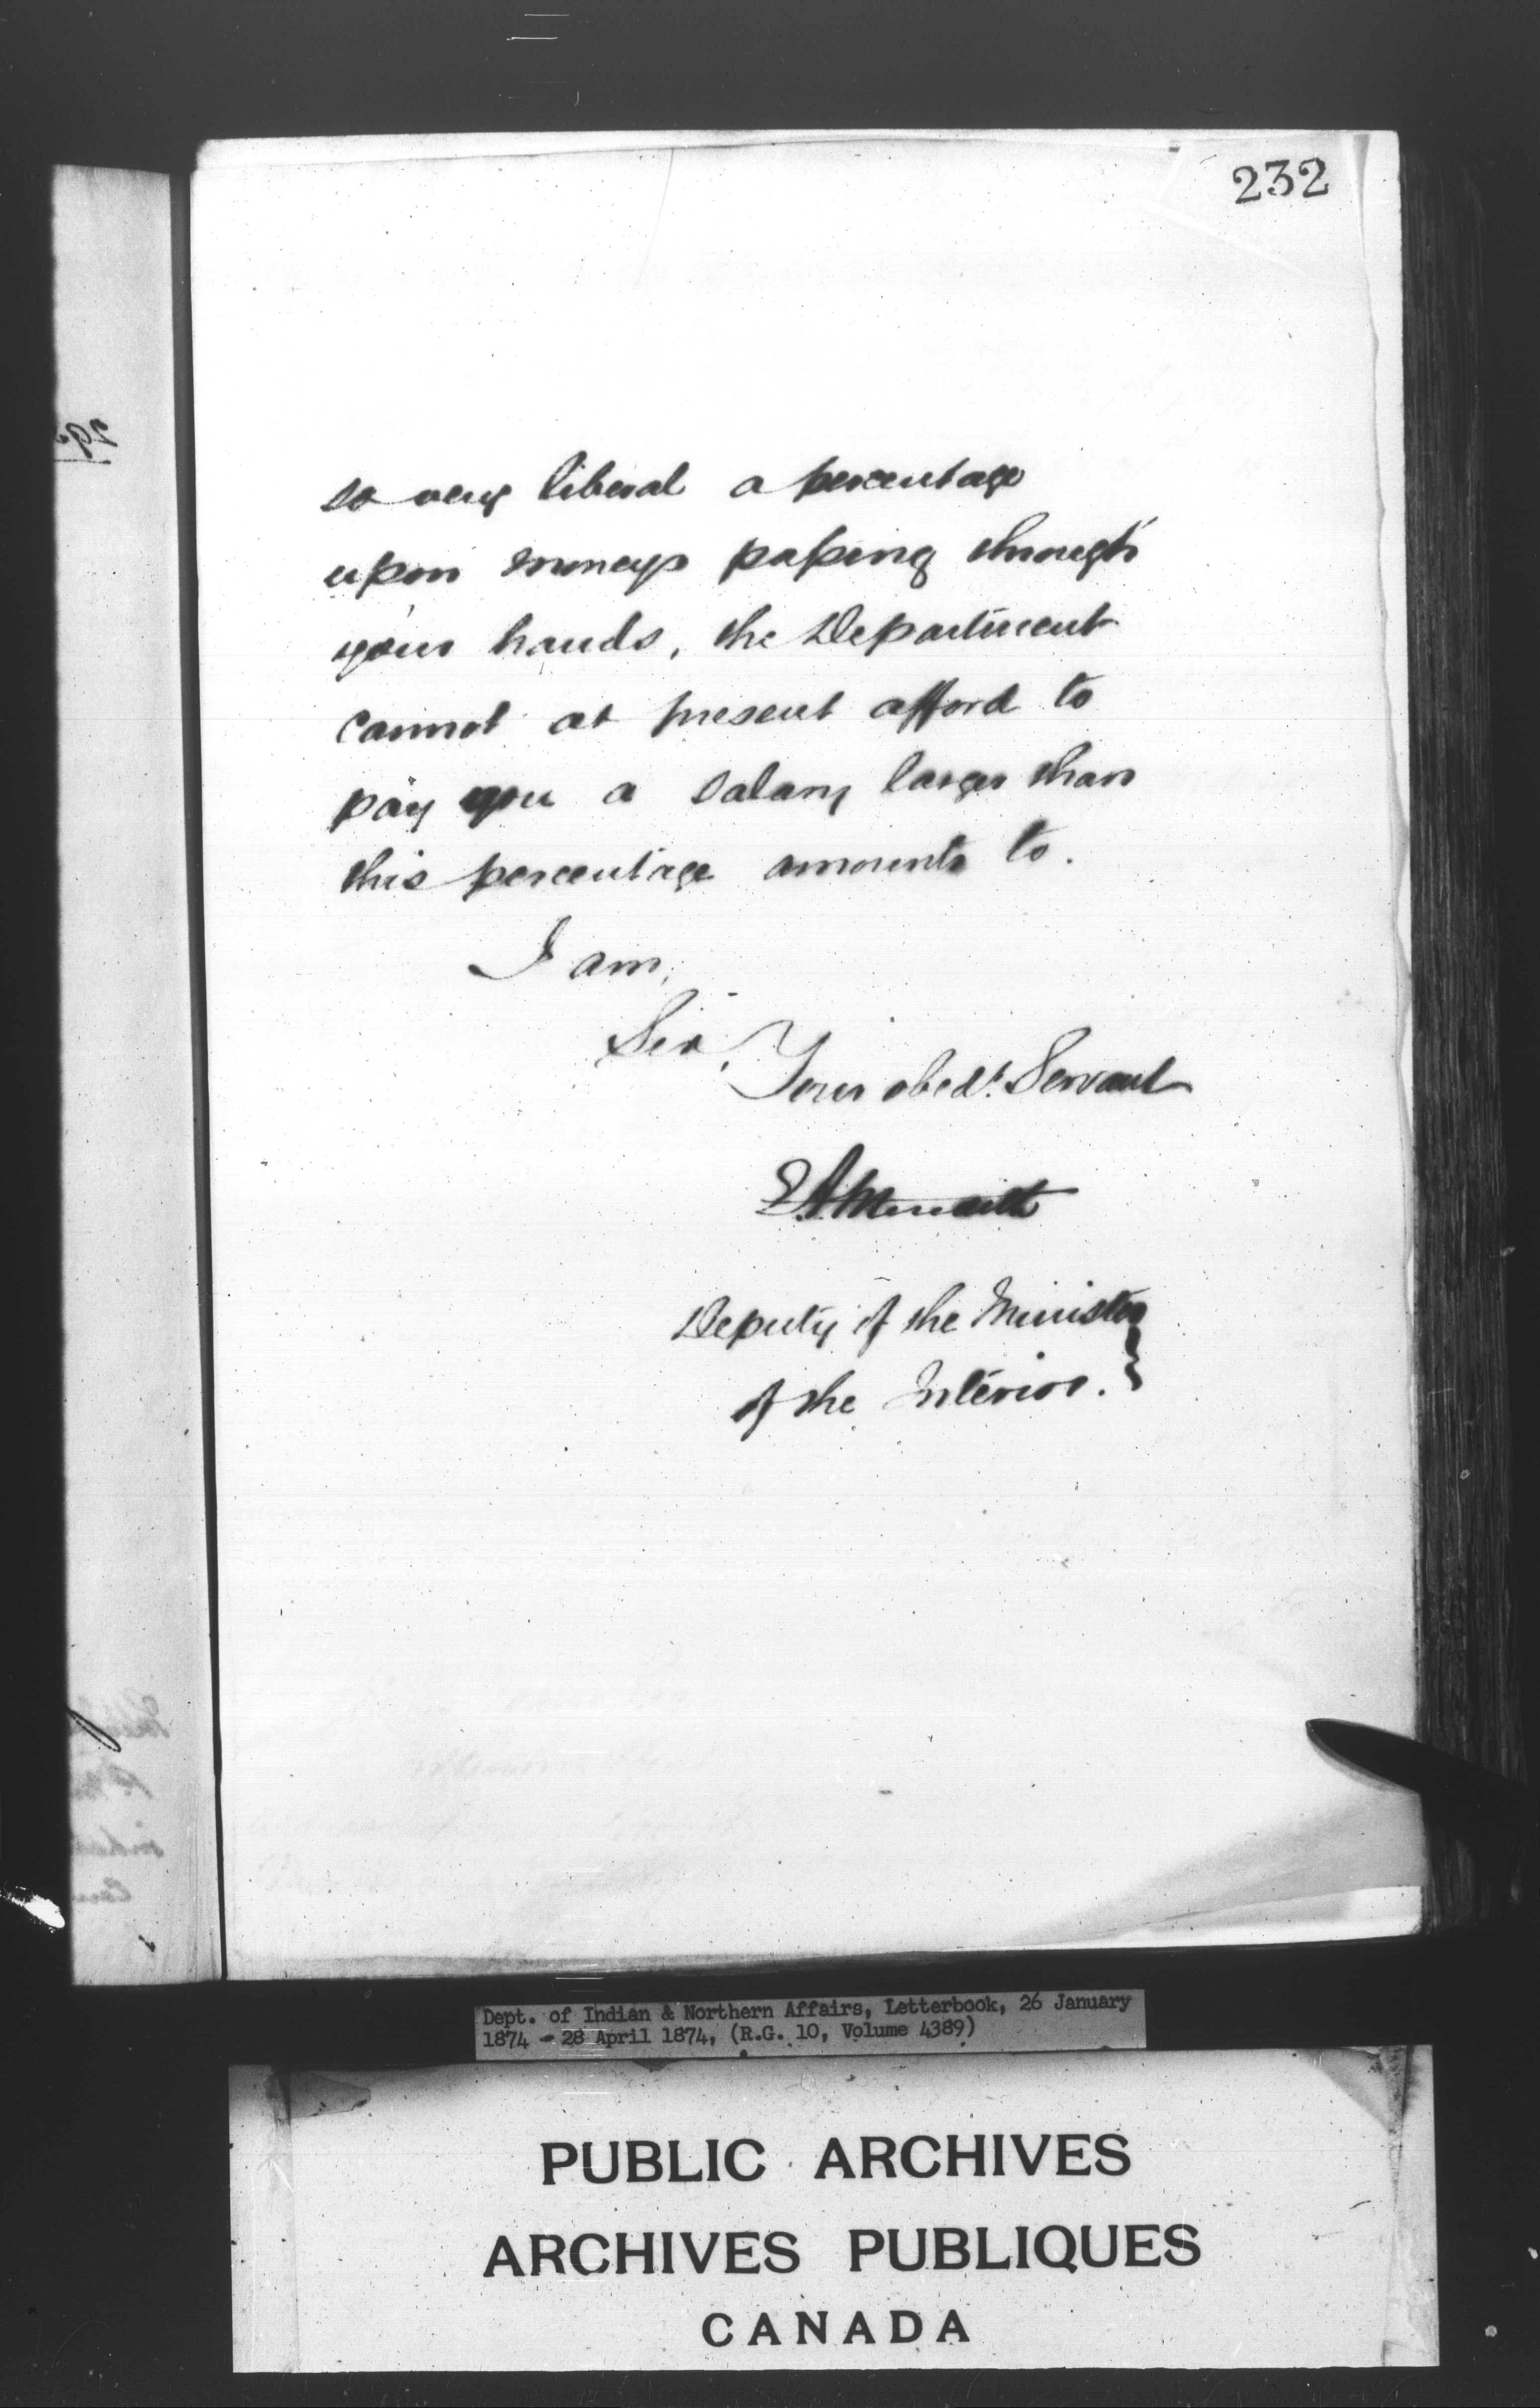 232
so very liberal a percentage
upon moneys passing through
your hands, the Department
cannot at present afford to
pay you a salary larger than
this percentage amounts to.
I am,
Sir,
Your obedt. Servant
E A Meredith
Deputy of the Minister
of the Interior.
Dept. of Indian & Northern Affairs, Letterbook, 26 January
1874 - 28 April 1874, (R.G. 10, Volume 4389)
PUBLIC ARCHIVES
ARCHIVES PUBLIQUES
CANADA